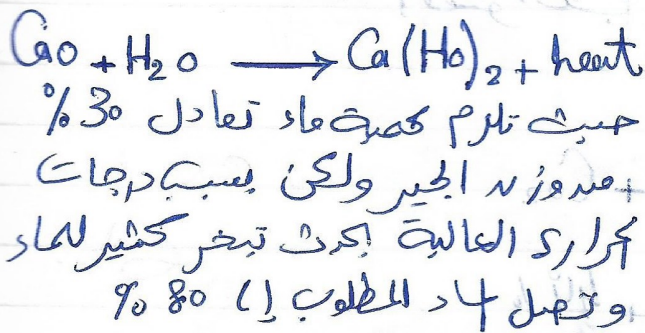 CaO + H2O ⟶ Ca(HO)2 + heat
حيث تلزم كمية ماء تعادل 30 %
من وزن الجير ولكن بسبب درجات
الحرارة العالية يحدث تبخر كثير للماء
وتصل الماء المطلوب إلى 80 %